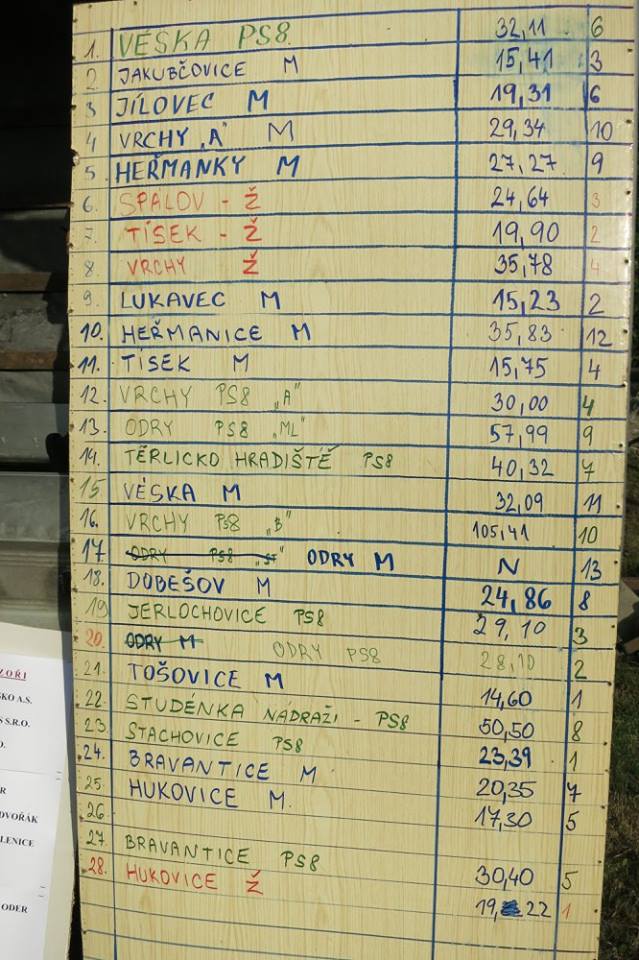 1. VÉSKA PS8 32,11 6
2 JAKUBČOVICE M 15,41 3
3 JÍLOVEC M 19,31 6
4 VRCHY „A" M 29,34 10
5. HEŘMANKY M 27,27 9
6. SPÁLOV - Ž 24,64 3
7. TÍSEK - Ž 19,90 2
8. VRCHY Ž 35,78 4
9. LUKAVEC M 15,23 2
10. HEŘMANICE M 35,83 12
11. TÍSEK M 15,75 4
12. VRCHY PS8 „A" 30,00 4
13. ODRY PS8 „ML" 57,99 9
14. TĚRLICKO HRADIŠTĚ PS8 40,32 7
15 VÉSKA M 32,09 11
16. VRCHY PS8 „B" 105,41 10
17 ODRY PS8 ODRY M N 13
18. DOBEŠOV M 24,86 8
19 JERLOCHOVICE PS8 29,10 3
20. ODRY M ODRY PS8 28,10 2
21. TOŠOVICE M 14,60 1
22. STUDÉNKA NÁDRAŽI - PS8 50,50 8
23. STACHOVICE PS8 23,39 1
24. BRAVANTICE M 20,35 7
25. HUKOVICE M. 17,30 5
26
27. BRAVANTICE PS8 30,40 5
28. HUKOVICE Ž 19,22 1
ZOŘI
SKO A.S.
S S.R.O.
O.
R
DVOŘÁK
LENICE
ODER